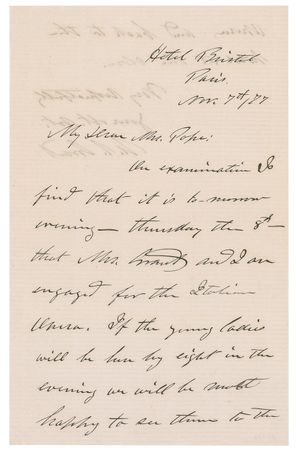 Hotel Bristol
Paris.
Nov. 7th/77
My Dear Mrs. Pope:
On examination I
find that it is to-morrow
evening — thursday the 8th —
that Mrs. Grant and I are
engaged for the Italien
Opera. If the young ladies
will be here by eight in the
evening we will be most
happy to see them to the